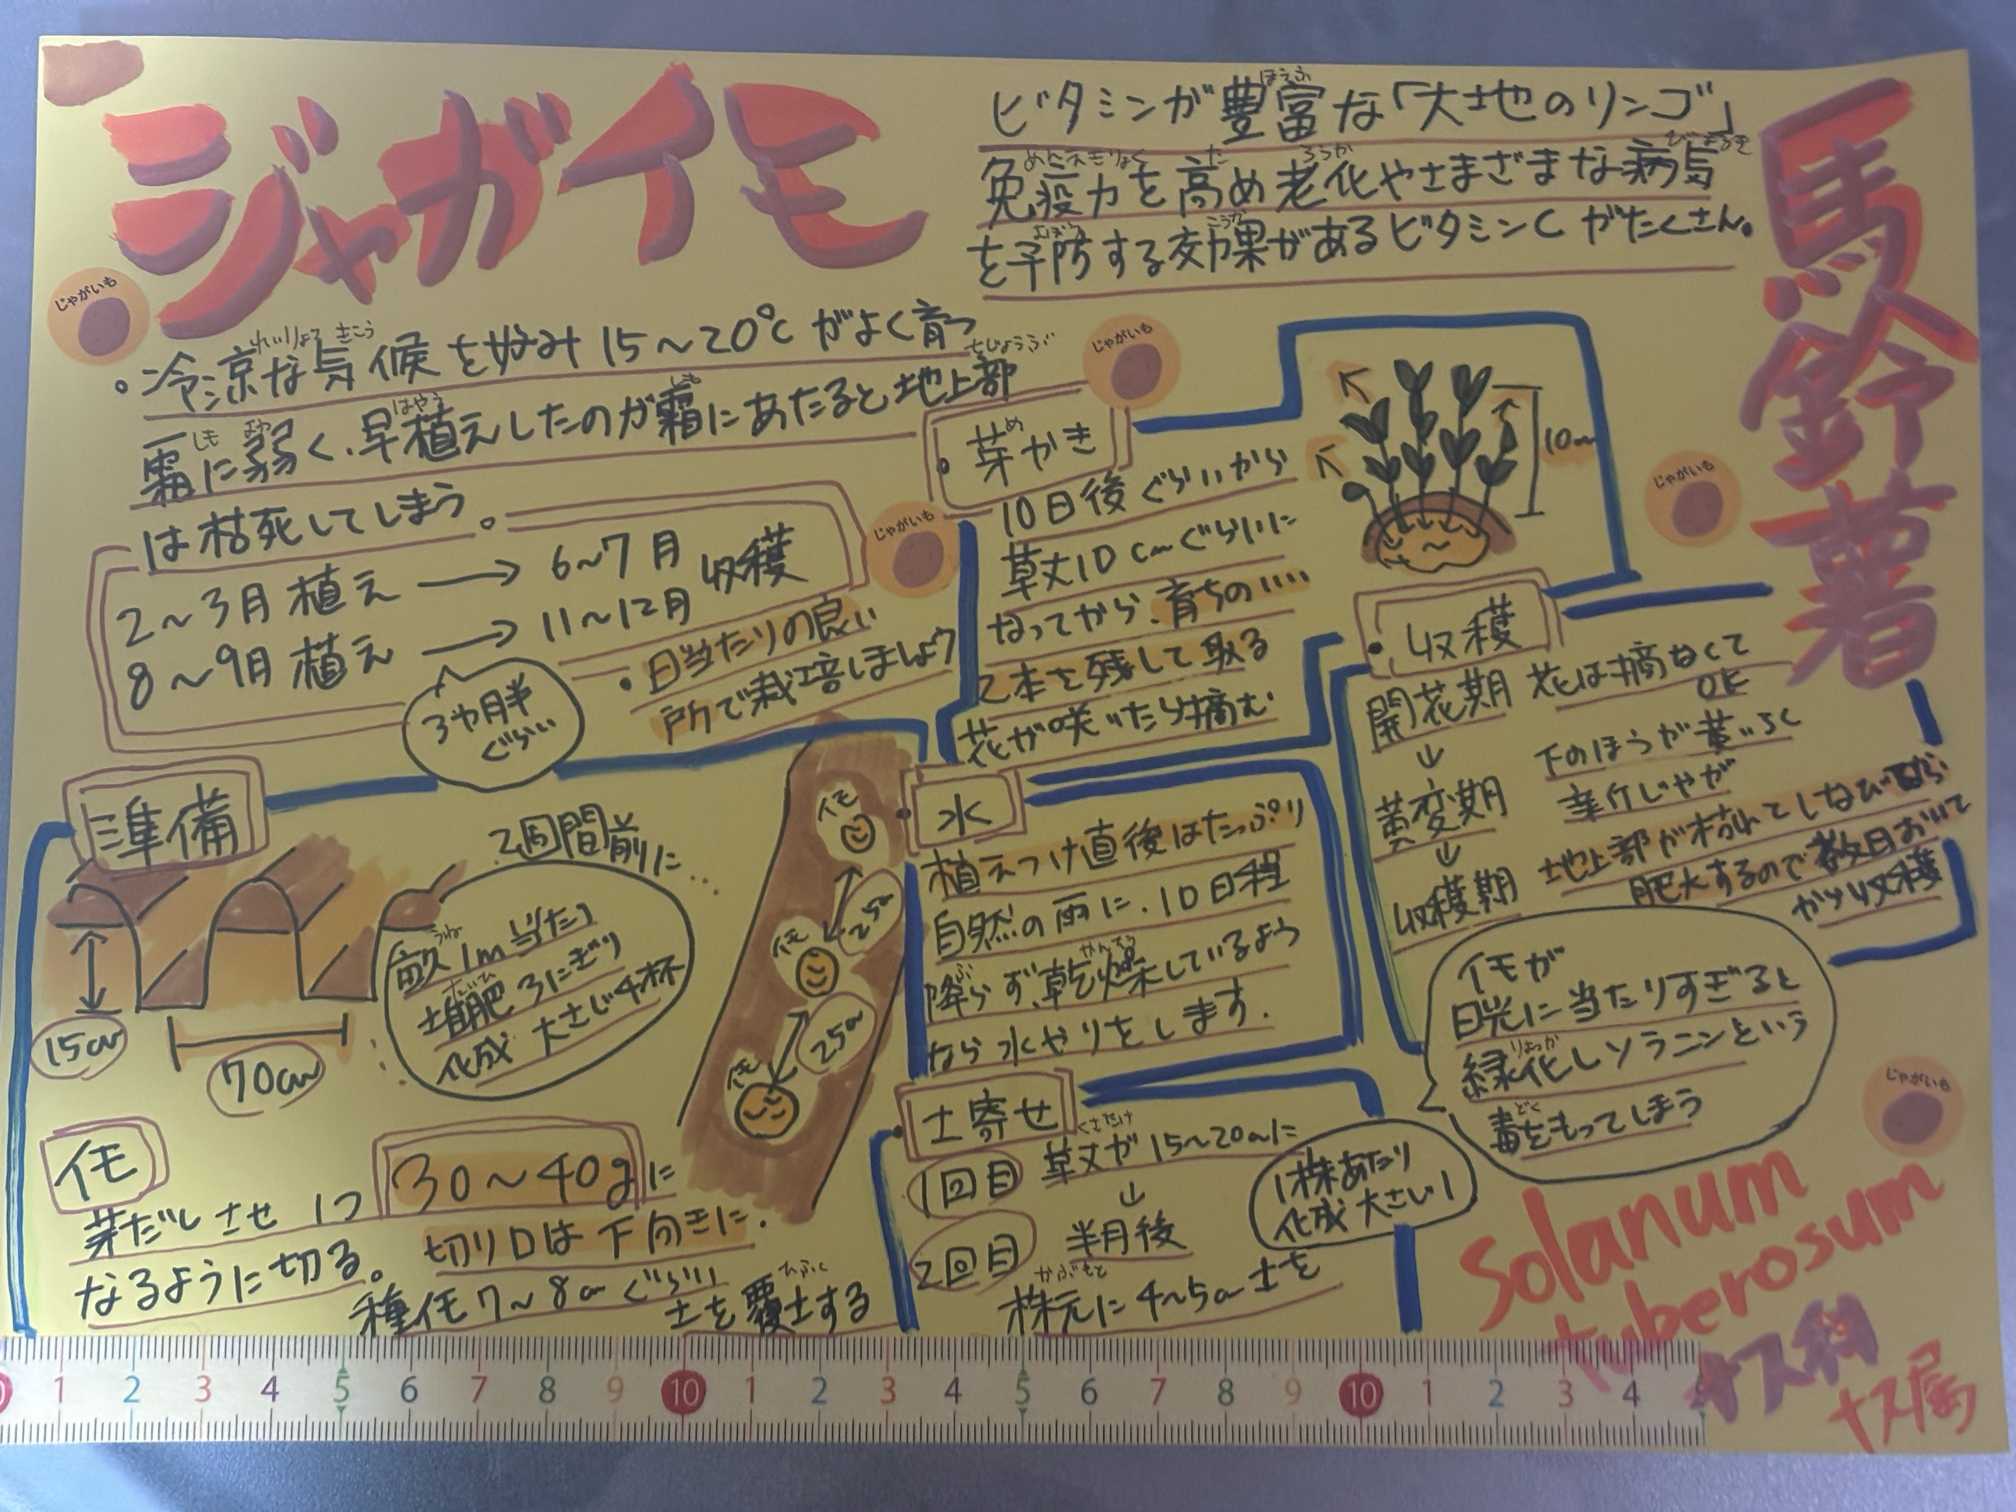 ジャガイモ
馬鈴薯
ビタミンが豊富な「大地のリンゴ」
免疫力を高め老化やさまざまな病気
を予防する効果があるビタミンCがたくさん。
・冷涼な気候を好み15~20℃がよく育つ
霜に弱く、早植えしたのが霜にあたると地上部
は枯死してしまう。
2~3月植え → 6~7月
8~9月植え → 11~12月 収穫
3ヶ月半
ぐらい
・日当たりの良い
所で栽培しましょう
準備
15cm
70cm
2週間前に…
畝1m当たり
堆肥3にぎり
化成 大さじ4杯
イモ
25cm
イモ
25cm
イモ
イモ
芽だしさせ 1つ 30~40gに
なるように切る。切り口は下向きに.
種イモ7~8cmぐらい
土を覆土する
・芽かき
10日後ぐらいから
草丈10cmぐらいに
なってから、育ちのいい
2本を残して取る
花が咲いたら摘む
10cm
・水
植えつけ直後はたっぷり
自然の雨に、10日程
降らず、乾燥しているよう
なら水やりをします.
・土寄せ
1回目 草丈が15~20cmに
↓
2回目 半月後
株元に4~5cm土を
1株あたり
化成 大さじ1
・収穫
開花期 花は摘なくて
OK
↓
黄変期 下のほうが黄いろく
↓
収穫期 地上部が枯れてしなびてから
肥大するので数日おいて
イモが
日光に当たりすぎると
緑化しソラニンという
毒をもってしまう
じゃがいも
じゃがいも
じゃがいも
じゃがいも
じゃがいも
Solanum
tuberosum
ナス科
ナス属
1 2 3 4 5 6 7 8 9 10 1 2 3 4 5 6 7 8 9 10 1 2 3 4 5